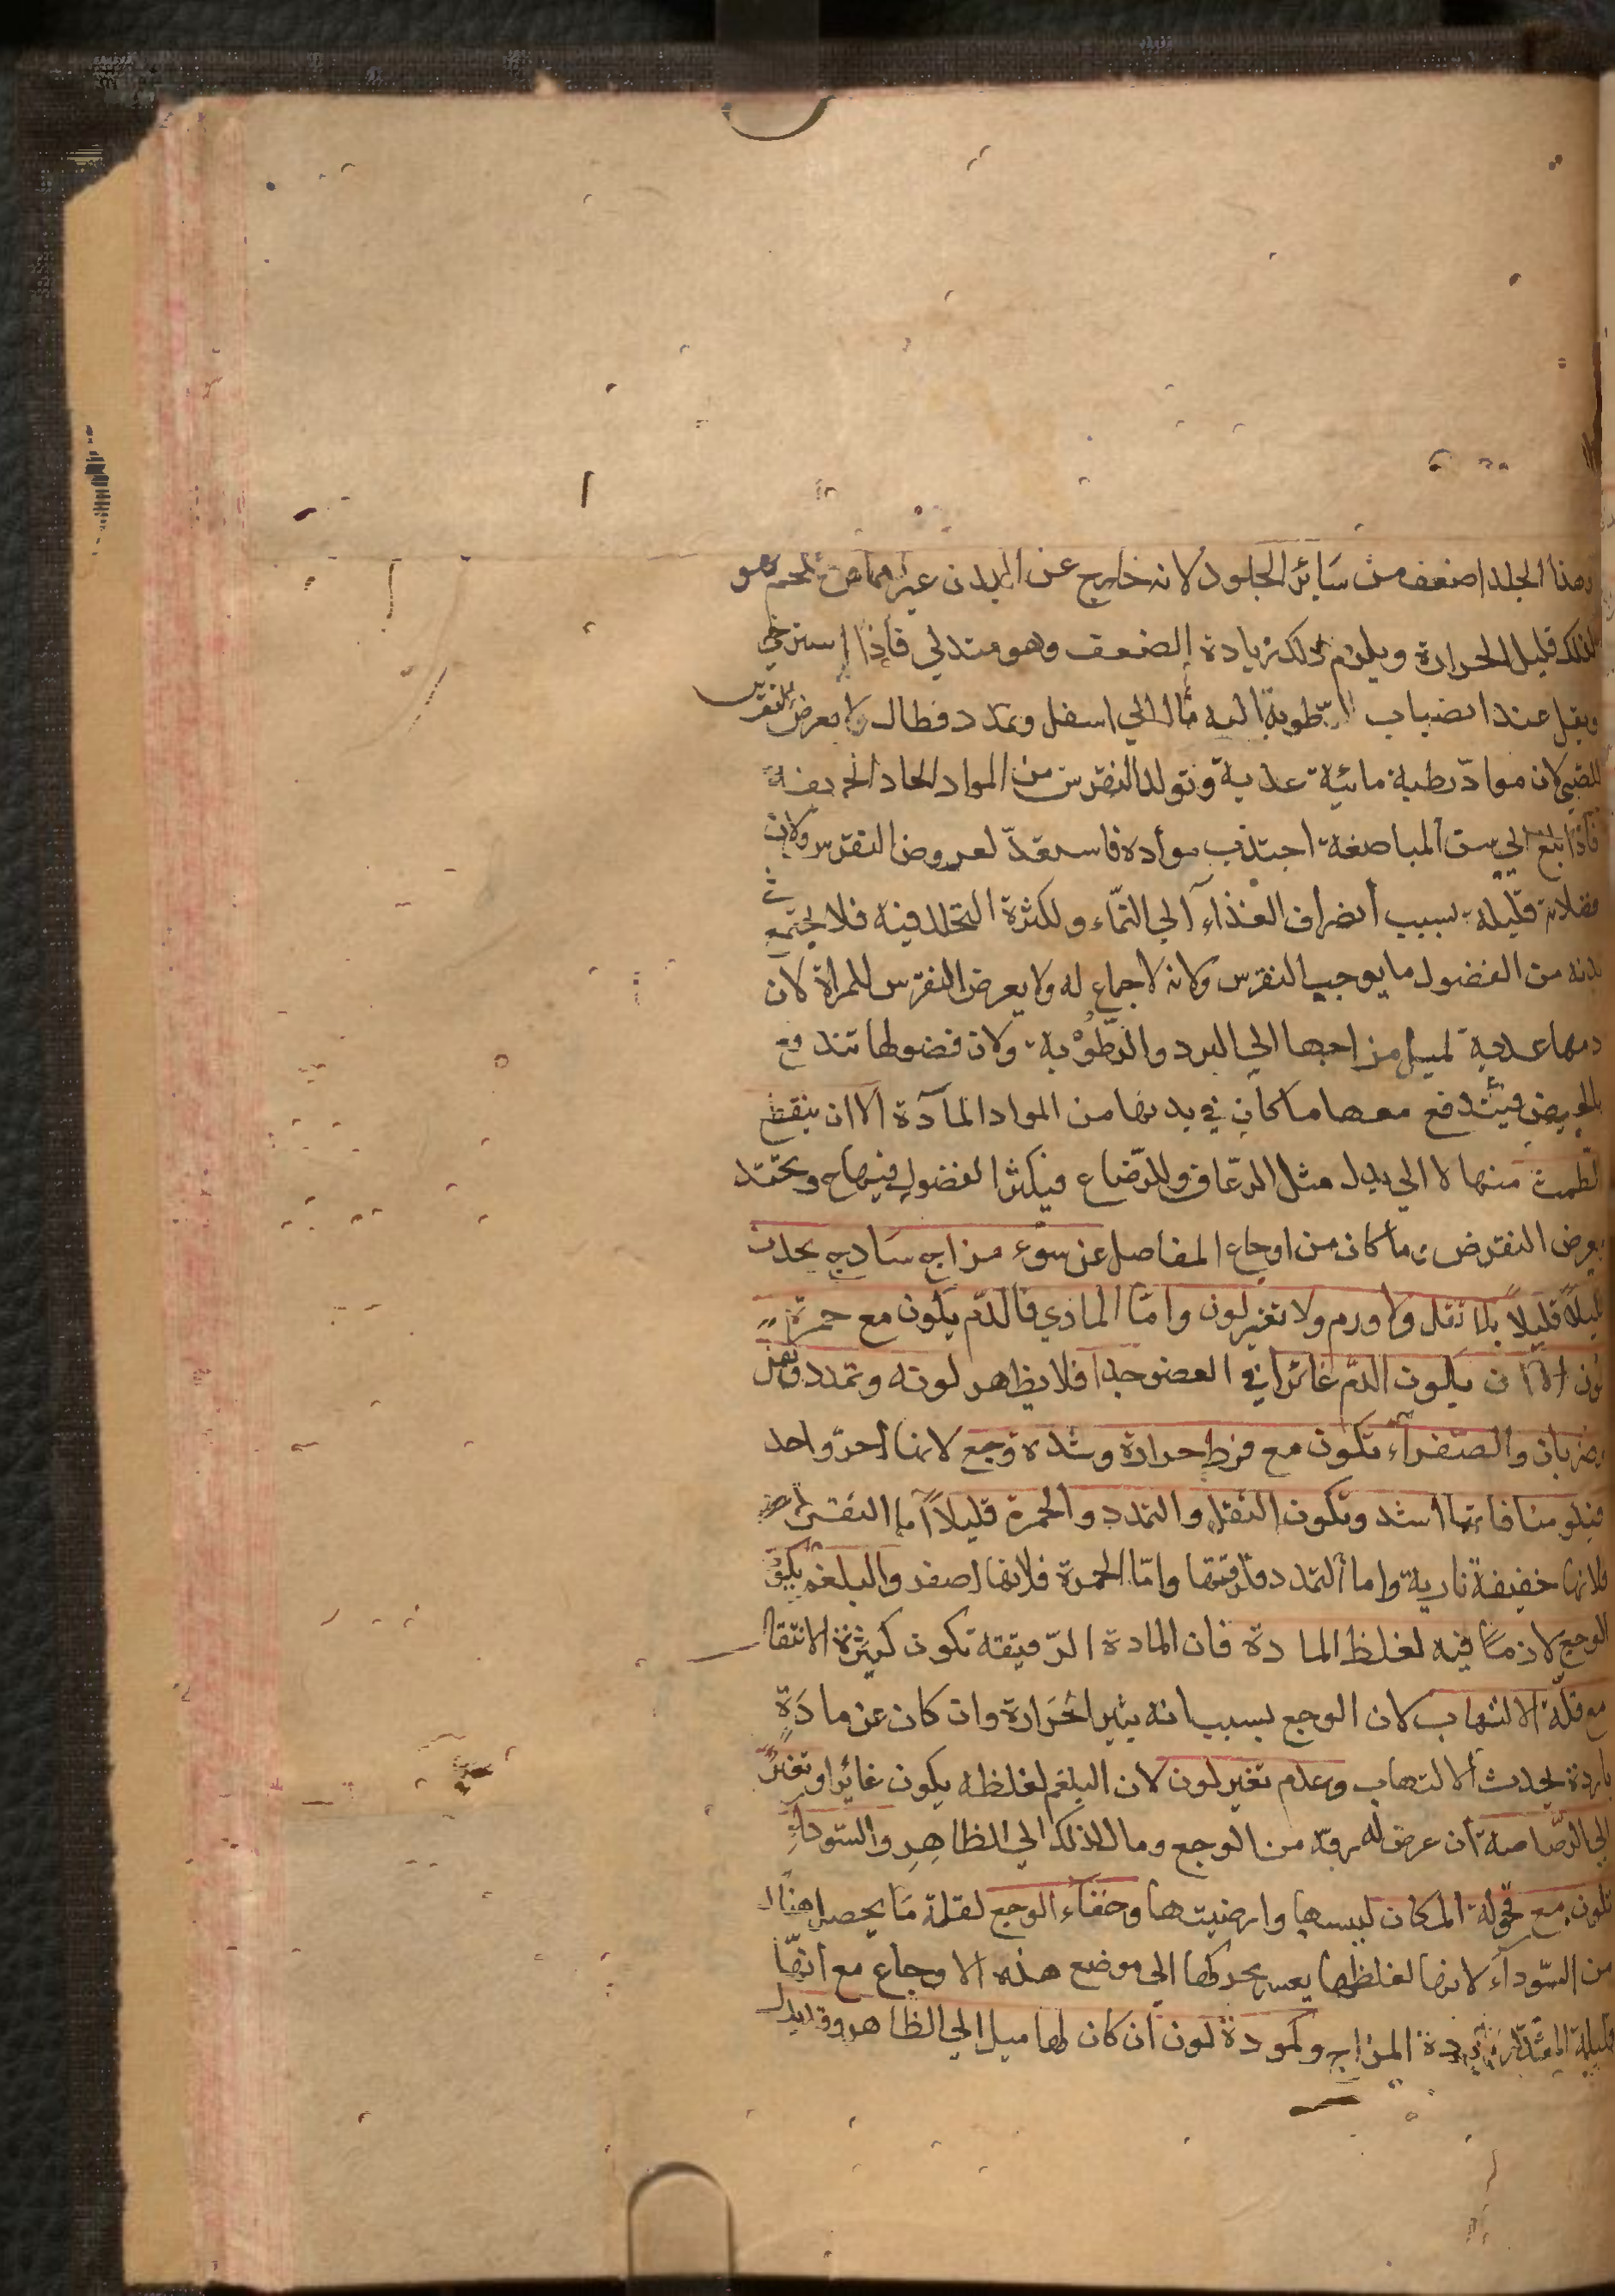 وهذا الجلد اضعف من سَائر الجلود لانه خارج عن البدن غير مماس للحم فهو
لذلك قليل الحرارة ويلزم ذلك زيادة الضعف وهو متدلي فاذا استرخي
وثقل عند انصباب الرّطوبة اليه مال الي اسفل وتمدد فطال ولا يعرض النقرس
للصبي لان موادّ رطبة مائية عذبة وتولد النقرس من المواد الحادة الحريفة
فاذا بلغ الي سن المباضعة اجتذب موادة فاستعدّ لعروض النقرس ولان
فضلاته قليلة بسبب انصراف الغذاء الي النمّاء ولكثرة التحلل فيه فلا يجتمع في
بدنه من الفضول ما يوجب النقرس ولانه لا جماع له ولا يعرض النقرس للمراة لان
دمها عذبة لميل مزاجها الي البرد والرّطُوْبة ولان فضولها تندفع
بالحيض فيندفع معها ما كان في بدنها من المواد المآدة الا ان ينقطع
الطمث منها لا الي بدل مثل الرّعاف والرّضاع فيكثر الفضول فيها ح وتحتد
يعرض النقرض وما كان من اوجاع المفاصل عن سوء مزاج سَاذج يحدث
قليلاً قليلاً بلا ثقل ولا ورم ولا تغير لون وامّا المادي فالدّم يكون مع حمرة
لون الا ان يكون الدّم غائرا في العضو جدا فلا يظهر لونه وتمدد وثقل
وضربان والصّفرآء تكون مع فرط حرارة وشدة وجع لانها احرّ واحد
فيكو منافاتها اشد وتكون الثقل والتمدد والحمرة قليلاً اما الثقل
فلانها خفيفة نارية واما التمدد فلرقتها وامّا الحمرة فلانها اصفر والبلغم يكون
الوجع لازمًا فيه لغلظ المادة فان المادة الرّقيقة تكون كثيرة الانتقال
مع قلّة الالتهاب لان الوجع بسبب انه يثير الحَرارة وان كان عن مادَةٍ
باردة يحدث الالتهاب وعدم تغير لون لان البلغم لغلظه يكون غائرا وتغيّر
الي الرّصاصة ان عرض له رقّة من الوجع ومال لذلك الي الظاهِر والسّودآء
تكون مع قحولة المكان ليبسها وارضيتها وخفآء الوجع لقلة مَا يحصل هناك
من السّودآء لانها لغلظها يعسر تحركها الي موضع هذه الاوجاع مع انهّا
قليلة المقدار المزاج وكمودة لون ان كان لها ميل الي الظاهر وقد